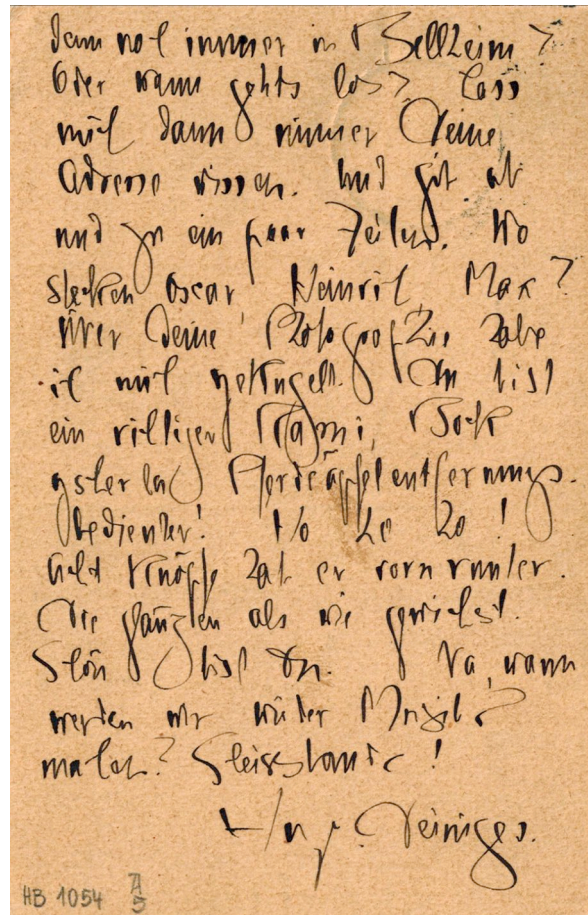 denn noch immer in Bellheim?
Oder wann gehts los? Lass
mich dann immer Deine
Adresse wissen. Und gib ab
und zu ein paar Zeilen. Wo
stecken Oscar, Heinrich, Max?
Über Deine Photographie habe
ich mich gekugelt. Du bist
ein richtiger
Pferdeäpfelentfernungs-
bedienter! Ho he ho!
Acht Knöpfe hat er vorn runter.
Die glänzen als wie gewichst.
Schön bist Du. Na, wann
werden wir wieder Musik
machen? Scheissbande!
HB 1054 A
5